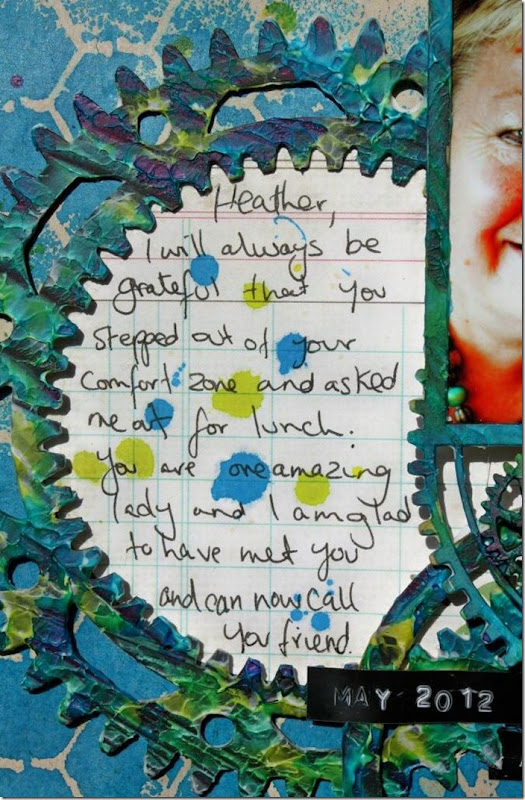 Heather,
I will always be
grateful that you
stepped out of your
comfort zone and asked
me out for lunch.
You are one amazing
lady and I am glad
to have met you
and can now call
you friend.
MAY 2012